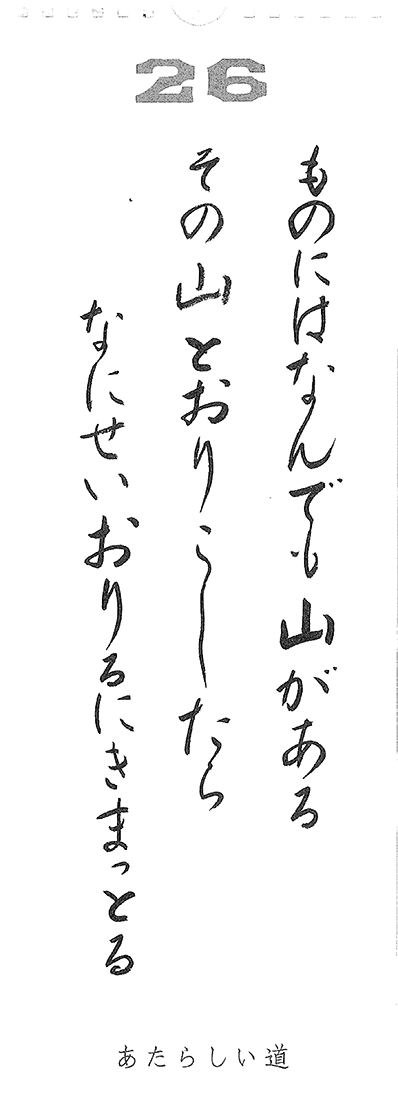 26
ものにはなんでも山がある
その山とおりこしたら
なにせいおりるにきまっとる
あたらしい道